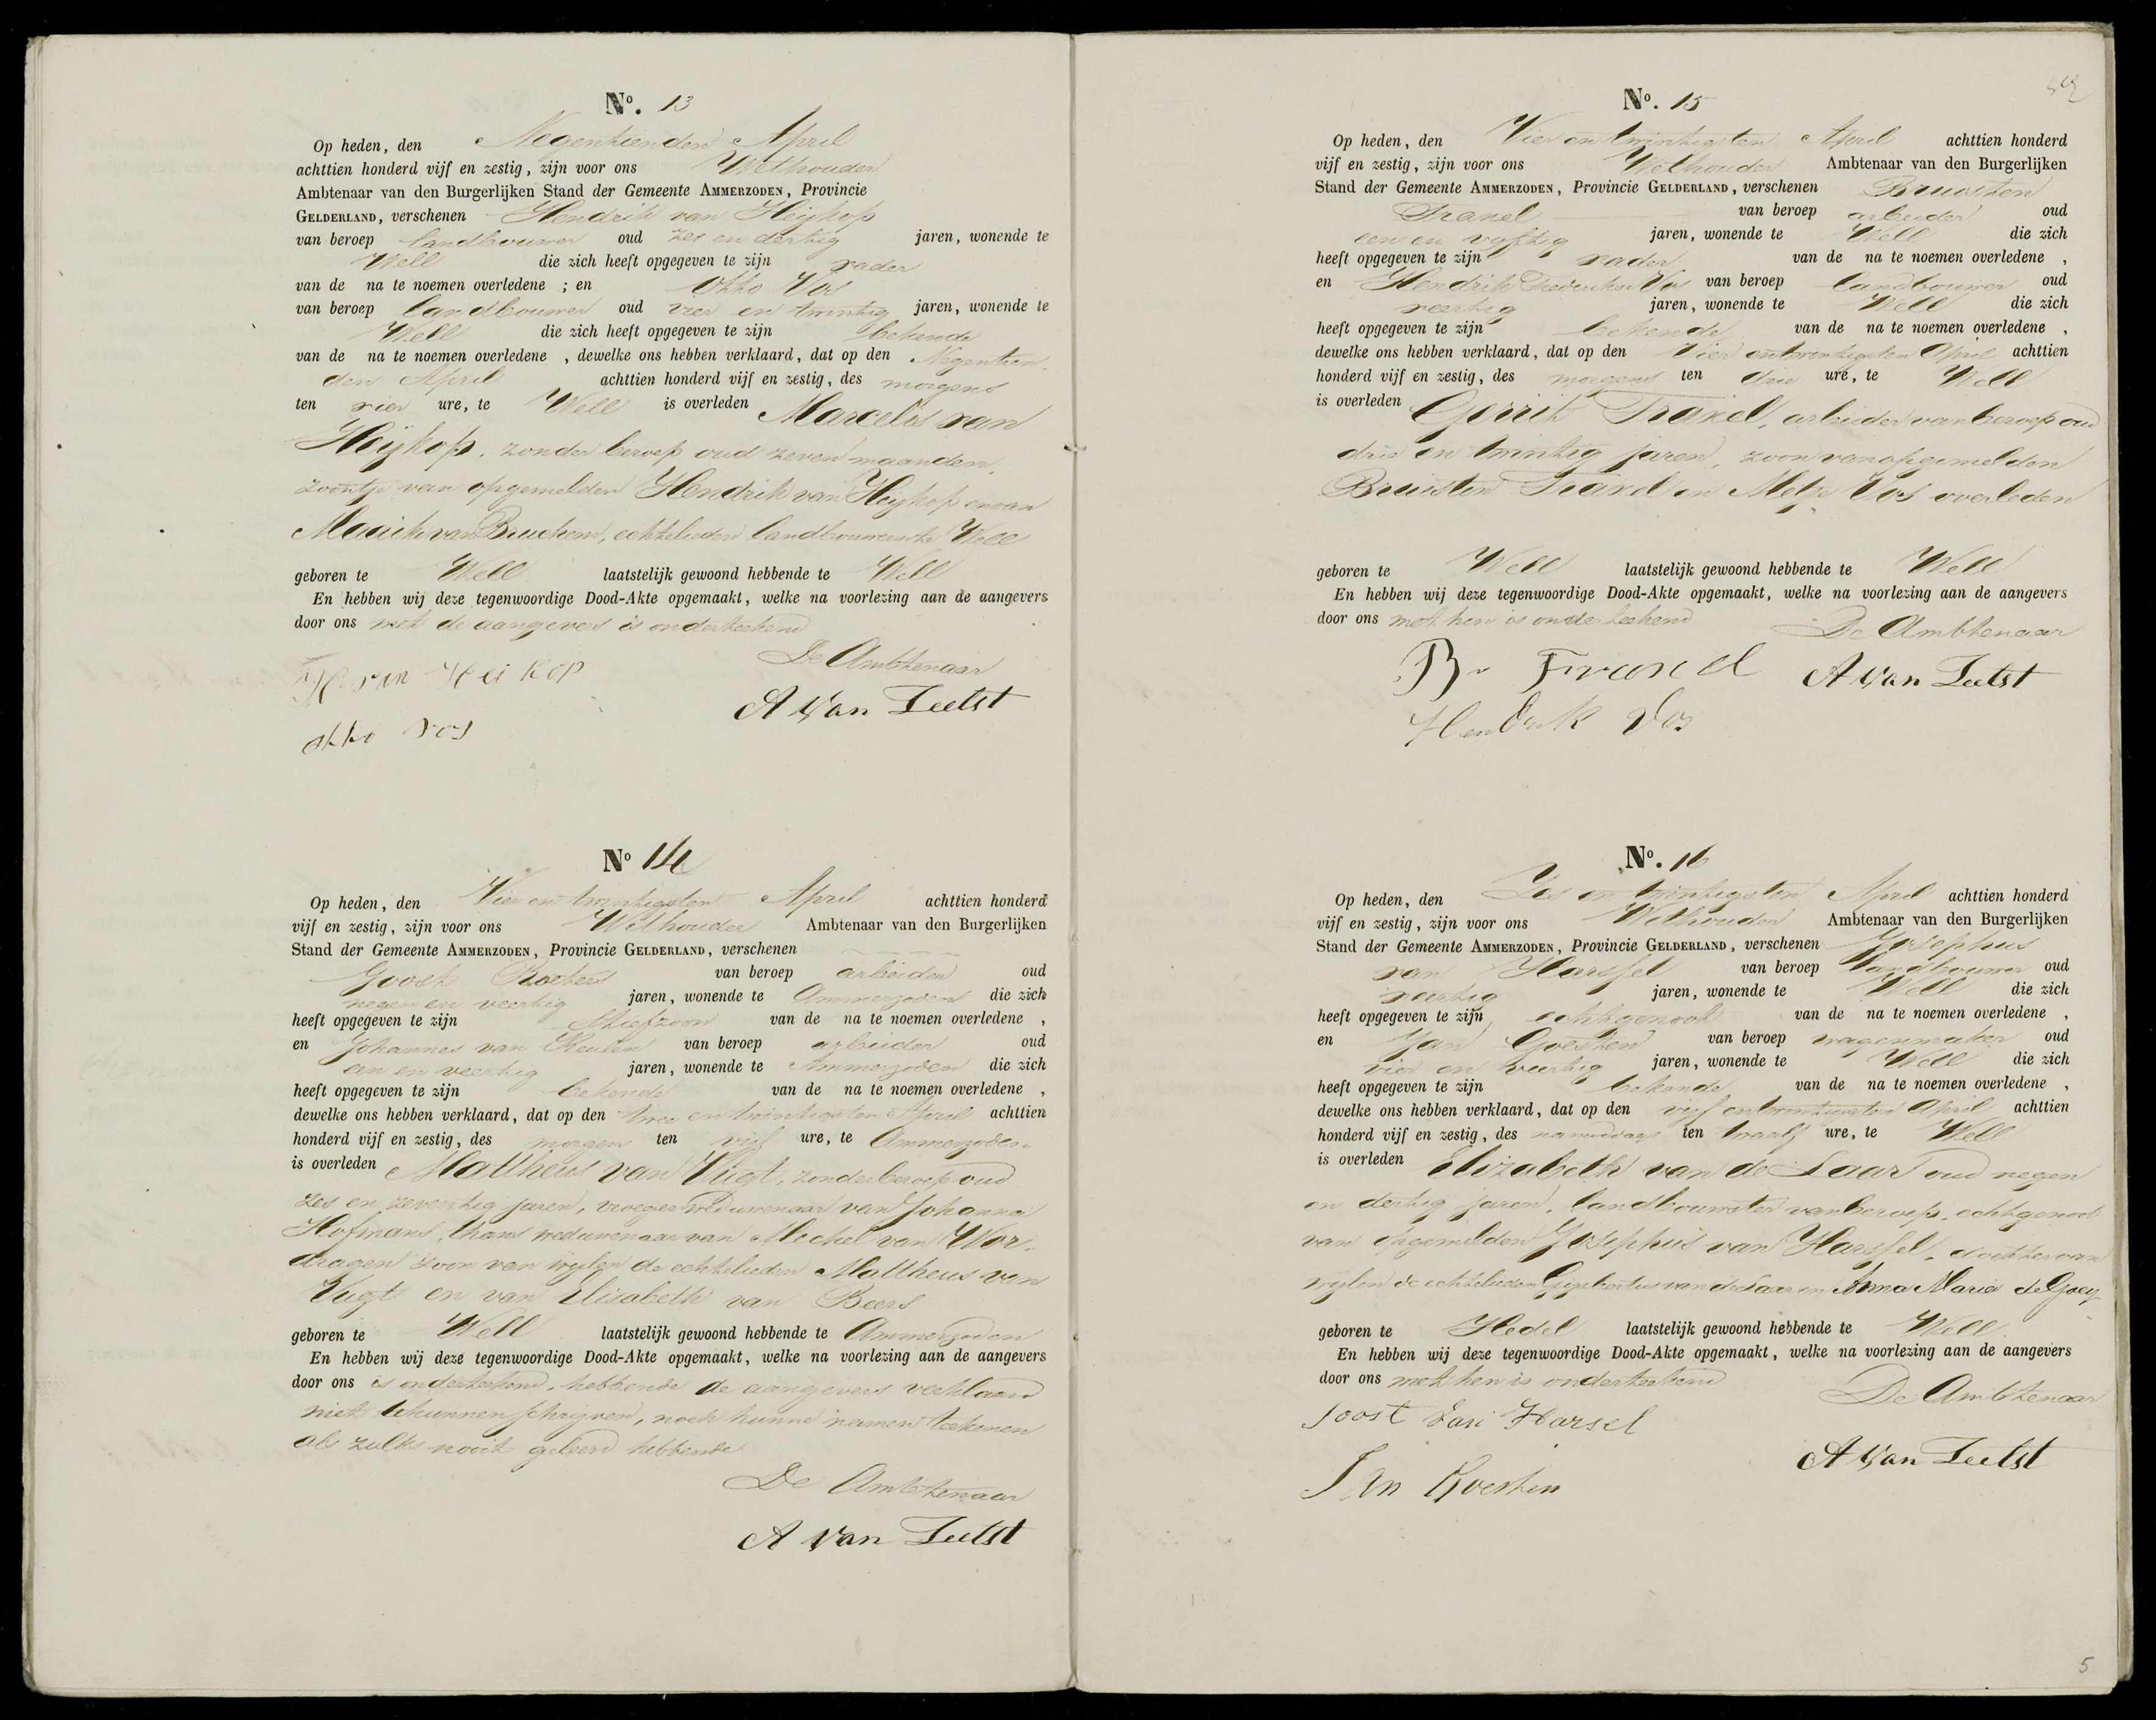 No. 13
Op heden, den Negentienden April
achttien honderd vijf en zestig, zijn voor ons Wethouder
Ambtenaar van den Burgerlijken Stand der Gemeente AMMERZODEN, Provincie
GELDERLAND, verschenen Hendrik van Heijkop
van beroep landbouwer oud zes en dertig jaren, wonende te
Well die zich heeft opgegeven te zijn vader
van de na te noemen overledene ; en Otto Vos
van beroep landbouwer oud vier en twintig jaren, wonende te
Well die zich heeft opgegeven te zijn bekende
van de na te noemen overledene , dewelke ons hebben verklaard, dat op den Negentien
den April achttien honderd vijf en zestig, des morgens
ten vier ure, te Well is overleden Marcelis van
Heijkop, zonder beroep oud zeven maanden,
zoontje van opgemelden Hendrik van Heijkop en van
Maaike van Bruchem, echtelieden landbouwers te Well
geboren te Well laatstelijk gewoond hebbende te Well
En hebben wij deze tegenwoordige Dood-Akte opgemaakt, welke na voorlezing aan de aangevers
door ons met de aangevers is onderteekend
De Ambtenaar
H van Heikop
A van Zeelst
otto vos
No 14
Op heden, den Vier en twintigsten April achttien honderd
vijf en zestig, zijn voor ons Wethouder Ambtenaar van den Burgerlijken
Stand der Gemeente AMMERZODEN, Provincie GELDERLAND, verschenen
Goost van beroep arbeider oud
negen en veertig jaren, wonende te Ammerzoden die zich
heeft opgegeven te zijn stiefzoon van de na te noemen overledene ,
en Johannes van Keulen van beroep arbeider oud
een en veertig jaren, wonende te Ammerzoden die zich
heeft opgegeven te zijn bekende van de na te noemen overledene ,
dewelke ons hebben verklaard, dat op den twee en twintigsten April achttien
honderd vijf en zestig, des morgens ten vijf ure, te Ammerzoden
is overleden Mattheus van Vugt, zonder beroep oud
zes en zeventig jaren, vroeger weduwenaar van Johanna
Hofmans, thans weduwenaar van Mechel van Wor-
dragen zoon van wijlen de echtelieden Mattheus van
Vugt en van Elisabeth van Beers
geboren te Well laatstelijk gewoond hebbende te Ammerzoden
En hebben wij deze tegenwoordige Dood-Akte opgemaakt, welke na voorlezing aan de aangevers
door ons is onderteekend, hebbende de aangevers verklaard
niet te kunnen schrijven, noch hunne namen teekenen
als zulks nooit geleerd hebbende
De Ambtenaar
A van Zeelst
No. 15
Op heden, den Vier en twintigsten April achttien honderd
vijf en zestig, zijn voor ons Wethouder Ambtenaar van den Burgerlijken
Stand der Gemeente AMMERZODEN, Provincie GELDERLAND, verschenen Bruisten
Traxel van beroep arbeider oud
een en vijftig jaren, wonende te Well die zich
heeft opgegeven te zijn vader van de na te noemen overledene ,
en Hendrik Frederikus Vos van beroep landbouwer oud
veertig jaren, wonende te Well die zich
heeft opgegeven te zijn bekende van de na te noemen overledene ,
dewelke ons hebben verklaard, dat op den Vier en twintigsten April achttien
honderd vijf en zestig, des morgens ten drie ure, te Well
is overleden Gerrit Traxel, arbeider van beroep oud
drie en twintig jaren, zoon van opgemelden
Bruisten Traxel en Metje Vos overleden
geboren te Well laatstelijk gewoond hebbende te Well
En hebben wij deze tegenwoordige Dood-Akte opgemaakt, welke na voorlezing aan de aangevers
door ons met hen is onderteekend
De Ambtenaar
A van Zeelst
Hendrik Vos
No. 16
Op heden, den Zes en twintigsten April achttien honderd
vijf en zestig, zijn voor ons Wethouder Ambtenaar van den Burgerlijken
Stand der Gemeente AMMERZODEN, Provincie GELDERLAND, verschenen Josephus
van Harssel van beroep landbouwer oud
veertig jaren, wonende te Well die zich
heeft opgegeven te zijn echtgenoot van de na te noemen overledene ,
en Jan Goesten van beroep wagenmaker oud
vier en veertig jaren, wonende te Well die zich
heeft opgegeven te zijn bekende van de na te noemen overledene ,
dewelke ons hebben verklaard, dat op den vijf en twintigsten April achttien
honderd vijf en zestig, des namiddags ten twaalf ure, te Well
is overleden Elizabeth van de Laar oud negen
en dertig jaren, landbouwster van beroep, echtgenoot
van opgemelden Josephus van Harssel, dochter van
wijlen de echtelieden Gijsbertus van de Laar en Anna Maria de Goey
geboren te Hedel laatstelijk gewoond hebbende te Well
En hebben wij deze tegenwoordige Dood-Akte opgemaakt, welke na voorlezing aan de aangevers
door ons met hen is onderteekend
De Ambtenaar
Joost van Harsel
A van Zeelst
Jan Goesten
5